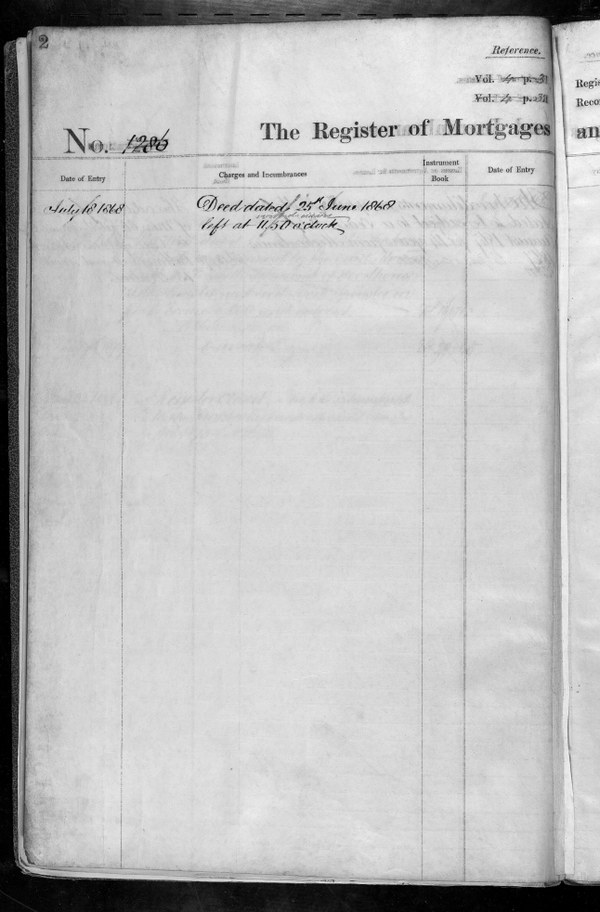 2
Reference.
Vol. 4 p.
Vol. 4 p.
No. 1286
The Register of Mortgages
an
Regis
Reco
Date of Entry
Charges and Incumbrances
Instrument
Book
Date of Entry
July 18 1868
Deed dated 25th June 1868
left at 11,50 o'clock